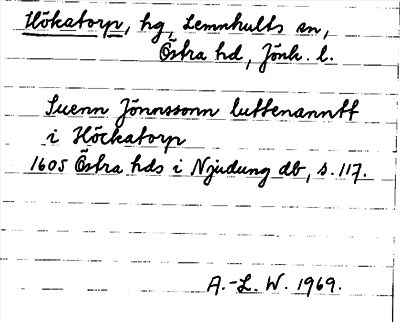 Hökatorp, hg, Lemnhults sn,
Östra hd, Jönk. l.
Suenn Jönnssonn luttenanntt
i Höckatorp
1605 Östra hds i Njudung db, s. 117.
A.-L. W. 1969.